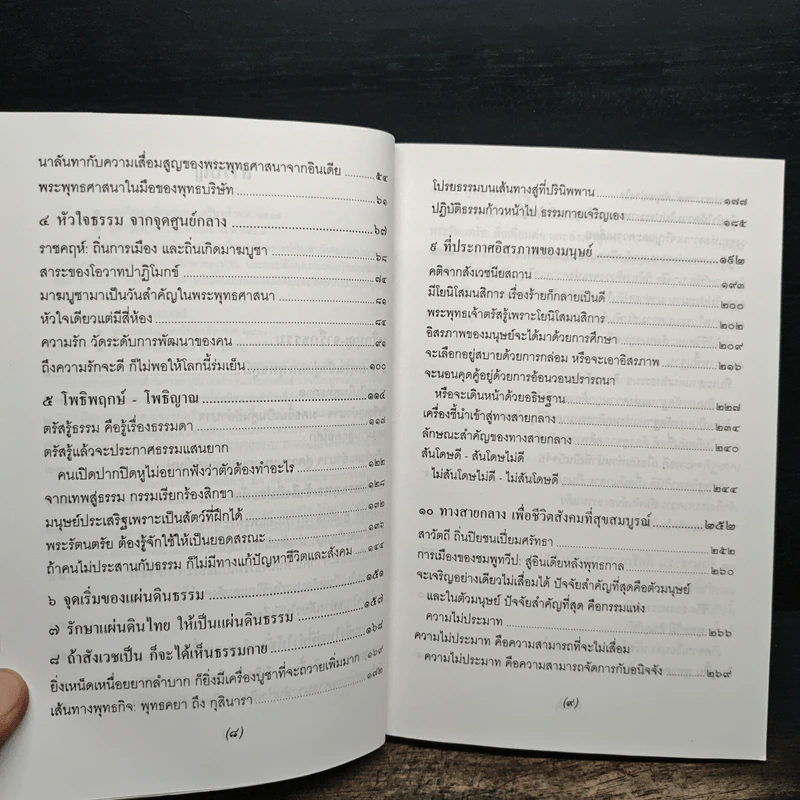 นาลันทากับความเสื่อมสูญของพระพุทธศาสนาจากอินเดีย ๕๔
พระพุทธศาสนาในมือของพุทธบริษัท ๖๑
๔ หัวใจธรรม จากจุดศูนย์กลาง ๖๗
ราชคฤห์: ถิ่นการเมือง และถิ่นเกิดมาฆบูชา ๖๘
สาระของโอวาทปาฏิโมกข์ ๗๔
มาฆบูชามาเป็นวันสำคัญในพระพุทธศาสนา ๘๑
หัวใจเดียวแต่มีสี่ห้อง
ความรัก วัดระดับการพัฒนาของคน ๙๑
ถึงความรักจะดี ก็ไม่พอให้โลกนี้ร่มเย็น ๑๐๐
๕ โพธิพฤกษ์ - โพธิญาณ ๑๑๔
ตรัสรู้ธรรม คือรู้เรื่องธรรมดา ๑๑๘
ตรัสรู้แล้วจะประกาศธรรมแสนยาก
คนเปิดปากปิดหูไม่อยากฟังว่าตัวต้องทำอะไร ๑๒๒
จากเทพสู่ธรรม กรรมเรียกร้องสิกขา ๑๒๘
มนุษย์ประเสริฐเพราะเป็นสัตว์ที่ฝึกได้
พระรัตนตรัย ต้องรู้จักใช้ให้เป็นยอดสรณะ ๑๓๖
ถ้าคนไม่ประสานกับธรรม ก็ไม่มีทางแก้ปัญหาชีวิตและสังคม ๑๔๔
๖ จุดเริ่มของแผ่นดินธรรม ๑๕๑
๗ รักษาแผ่นดินไทย ให้เป็นแผ่นดินธรรม ๑๕๗
๘ ถ้าสังเวชเป็น ก็จะได้เห็นธรรมกาย ๑๖๘
ยิ่งเหน็ดเหนื่อยยากลำบาก ก็ยิ่งมีเครื่องบูชาที่จะถวายเพิ่มมาก ๑๖๙
เส้นทางพุทธกิจ: พุทธคยา ถึง กุสินารา ๑๗๒
(๘)
โปรยธรรมบนเส้นทางสู่ที่ปรินิพพาน ๑๗๗
ปฏิบัติธรรมก้าวหน้าไป ธรรมกายเจริญเอง ๑๘๕
๙ ที่ประกาศอิสรภาพของมนุษย์ ๑๙๒
คติจากสังเวชนียสถาน ๑๙๓
มีโยนิโสมนสิการ เรื่องร้ายก็กลายเป็นดี ๒๐๐
พระพุทธเจ้าตรัสรู้เพราะโยนิโสมนสิการ ๒๐๒
อิสรภาพของมนุษย์จะได้มาด้วยการศึกษา ๒๐๙
จะเลือกอยู่สบายด้วยการกล่อม หรือจะเอาอิสรภาพ ๒๑๖
จะนอนคุดคู้อยู่ด้วยการอ้อนวอนปรารถนา
หรือจะเดินหน้าด้วยอธิษฐาน ๒๒๗
เครื่องชี้นำเข้าสู่ทางสายกลาง ๒๓๔
ลักษณะสำคัญของทางสายกลาง ๒๔๐
สันโดษดี - สันโดษไม่ดี
ไม่สันโดษไม่ดี - ไม่สันโดษดี ๒๔๔
๑๐ ทางสายกลาง เพื่อชีวิตสังคมที่สุขสมบูรณ์ ๒๕๒
สาวัตถี ถิ่นปิยชนเปี่ยมศรัทธา ๒๕๒
การเมืองของชมพูทวีป: สู่อินเดียหลังพุทธกาล ๒๖๐
จะเจริญอย่างเดียวไม่เสื่อมได้ ปัจจัยสำคัญที่สุดคือตัวมนุษย์
และในตัวมนุษย์ ปัจจัยสำคัญที่สุด คือกรรมแห่ง
ความไม่ประมาท ๒๖๖
ความไม่ประมาท คือความสามารถที่จะไม่เสื่อม
ความไม่ประมาท คือความสามารถจัดการกับอนิจจัง ๒๖๙
(๙)